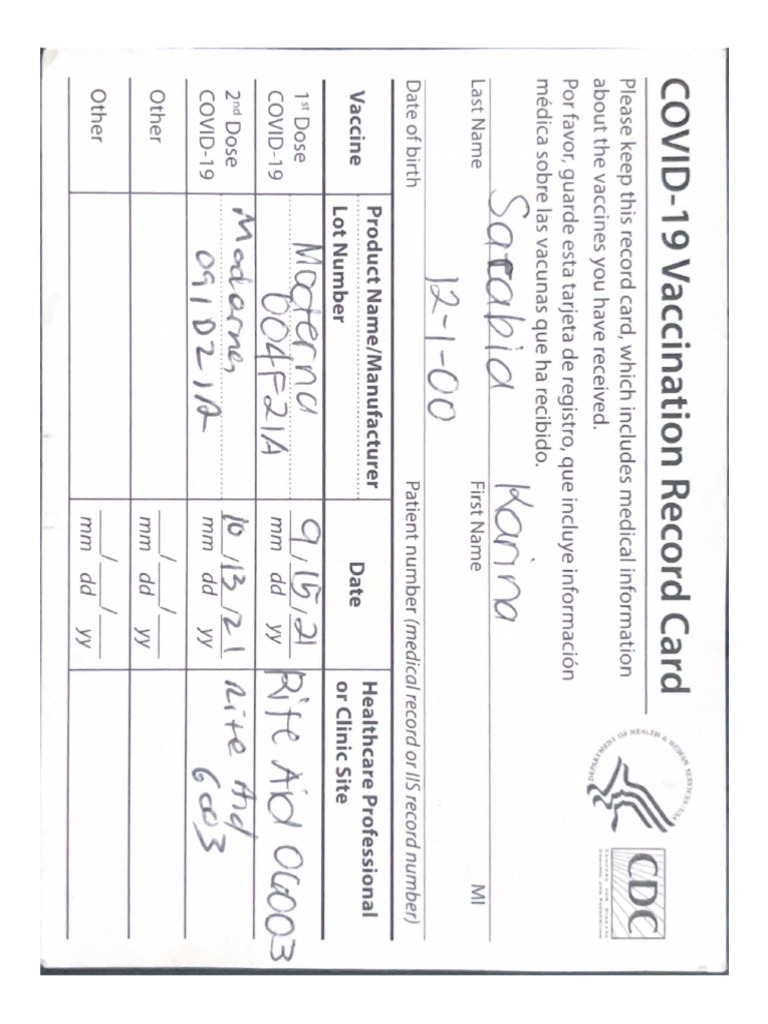 COVID-19 Vaccination Record Card
Please keep this record card, which includes medical information
about the vaccines you have received.
Por favor, guarde esta tarjeta de registro, que incluye información
médica sobre las vacunas que ha recibido.
DEPARTMENT OF HEALTH & HUMAN SERVICES · USA
CDC
CENTERS FOR DISEASE
CONTROL AND PREVENTION
Sarabia Karina
Last Name First Name MI
12-1-00
Date of birth Patient number (medical record or IIS record number)
Vaccine Product Name/Manufacturer Date Healthcare Professional
Lot Number or Clinic Site
1st Dose Moderna 9/15/21 Rite Aid 06003
COVID-19 004F21A mm dd yy
2nd Dose Moderna 10/13/21 Rite Aid
COVID-19 091D21A mm dd yy 6003
Other __/__/__
mm dd yy
Other __/__/__
mm dd yy